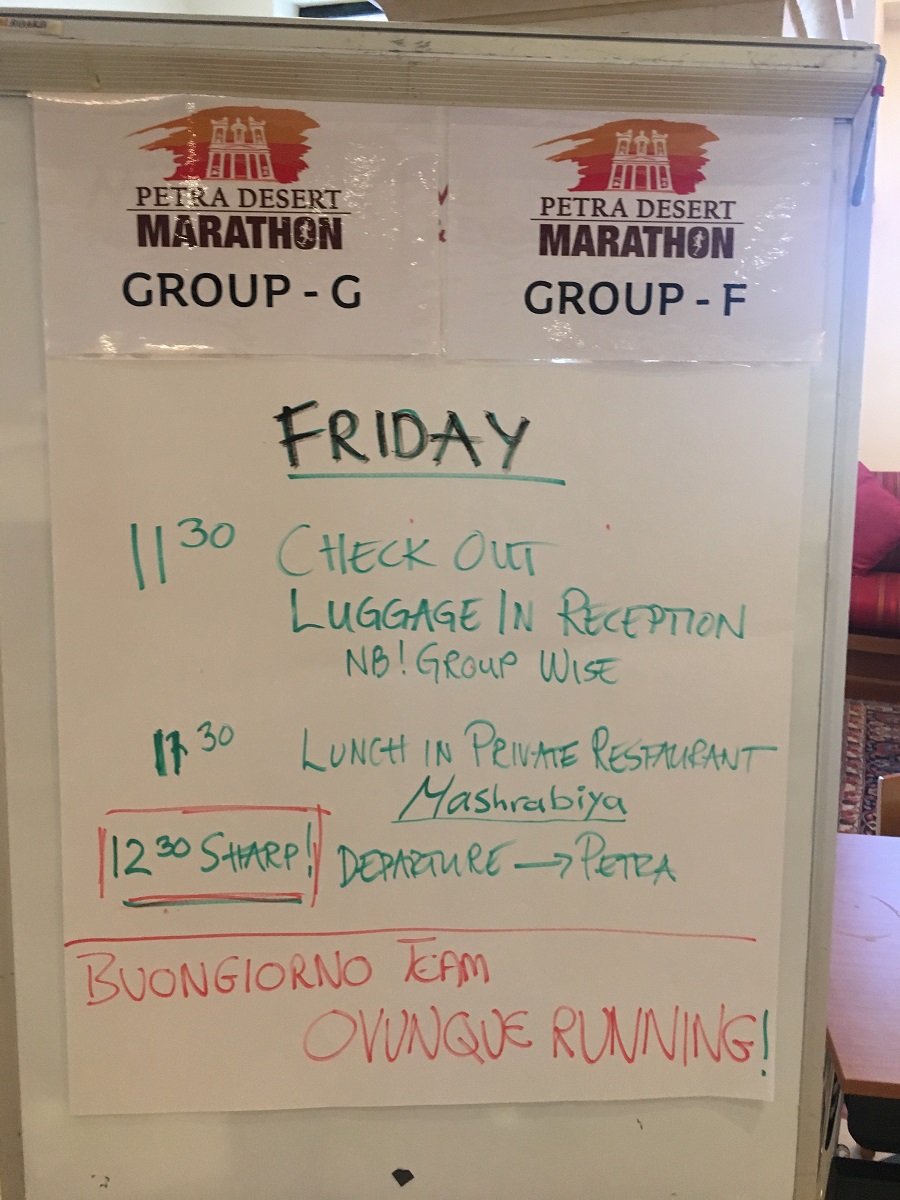 PETRA DESERT
MARATHON
GROUP - G
PETRA DESERT
MARATHON
GROUP - F
FRIDAY
11 30 CHECK OUT
LUGGAGE IN RECEPTION
NB! GROUP WISE
30 LUNCH IN PRIVATE RESTAURANT
Mashrabiya
12 30 SHARP! DEPARTURE → PETRA
BUONGIORNO TEAM
OVUNQUE RUNNING!